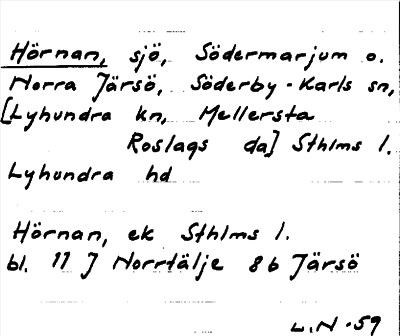 Hörnan, sjö, Södermarjum o.
Norra Järsö, Söderby-Karls sn,
[Lyhundra kn, Mellersta
Roslags da] Sthlms l.
Lyhundra hd
Hörnan, ek Sthlms l.
bl. 11 J Norrtälje 8b Järsö
L.N.59